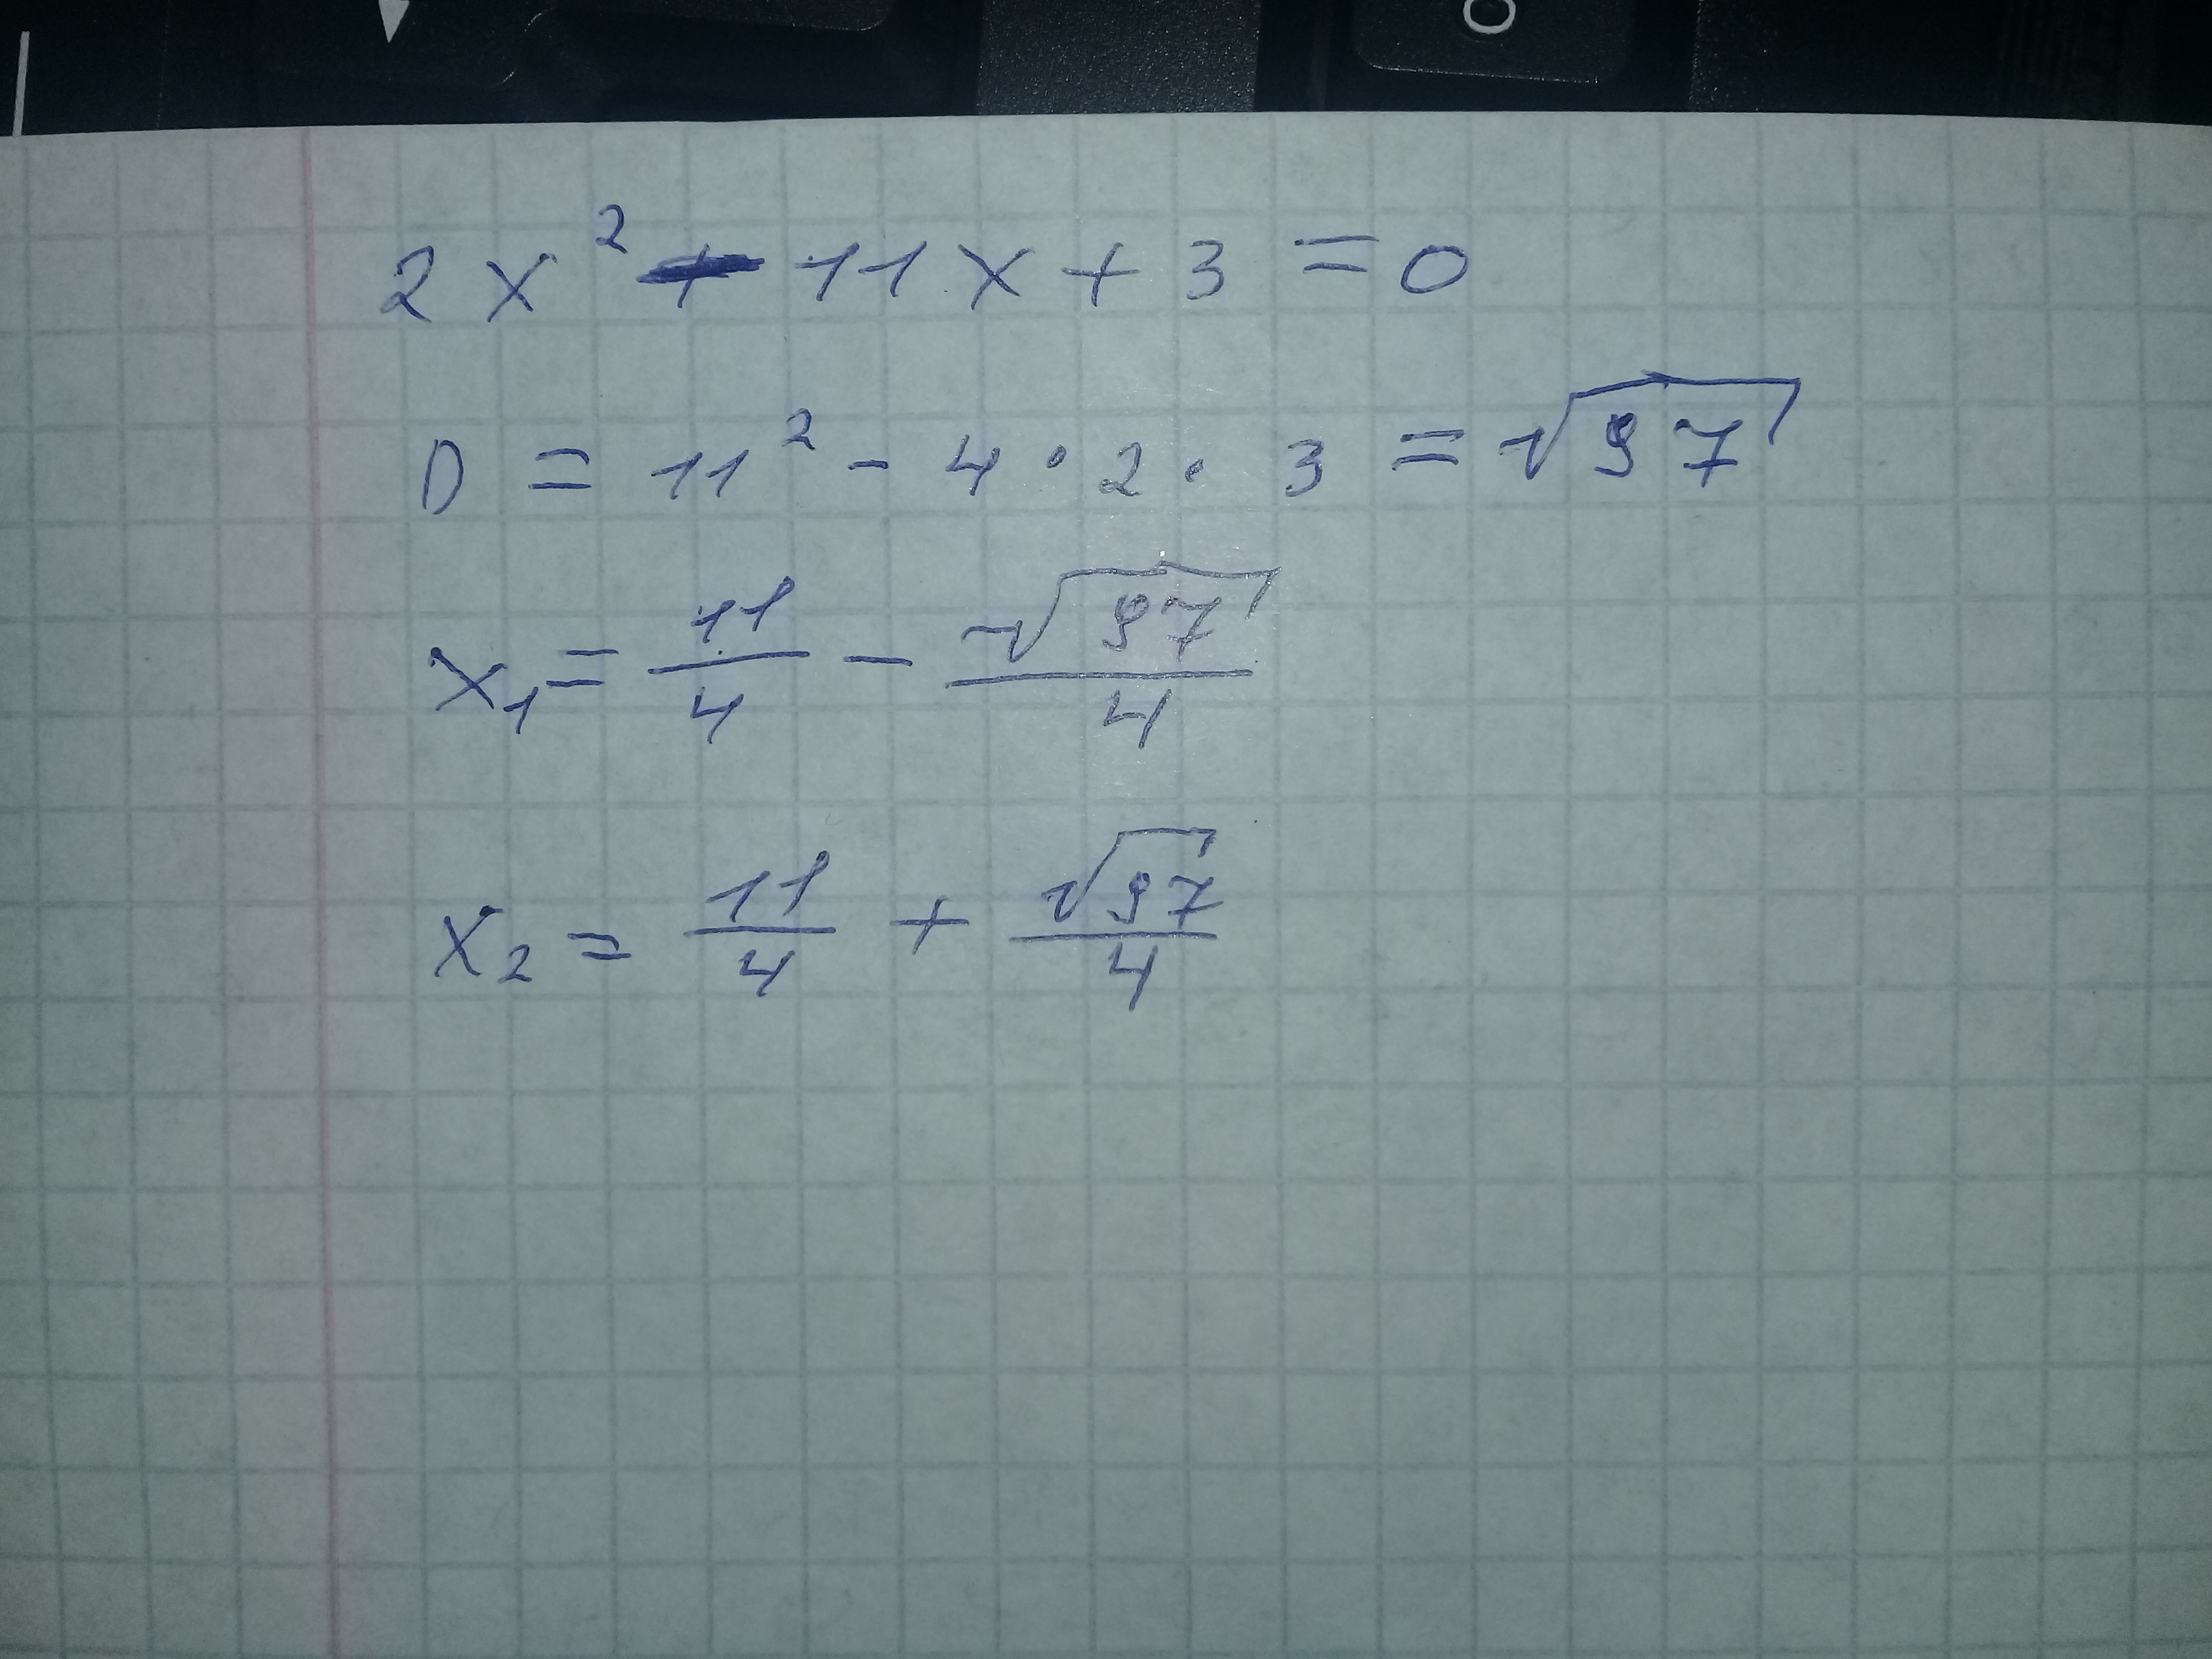 2x² - 11x + 3 = 0
D = 11² - 4 · 2 · 3 = √97
x₁ = 11/4 - √97/4
x₂ = 11/4 + √97/4